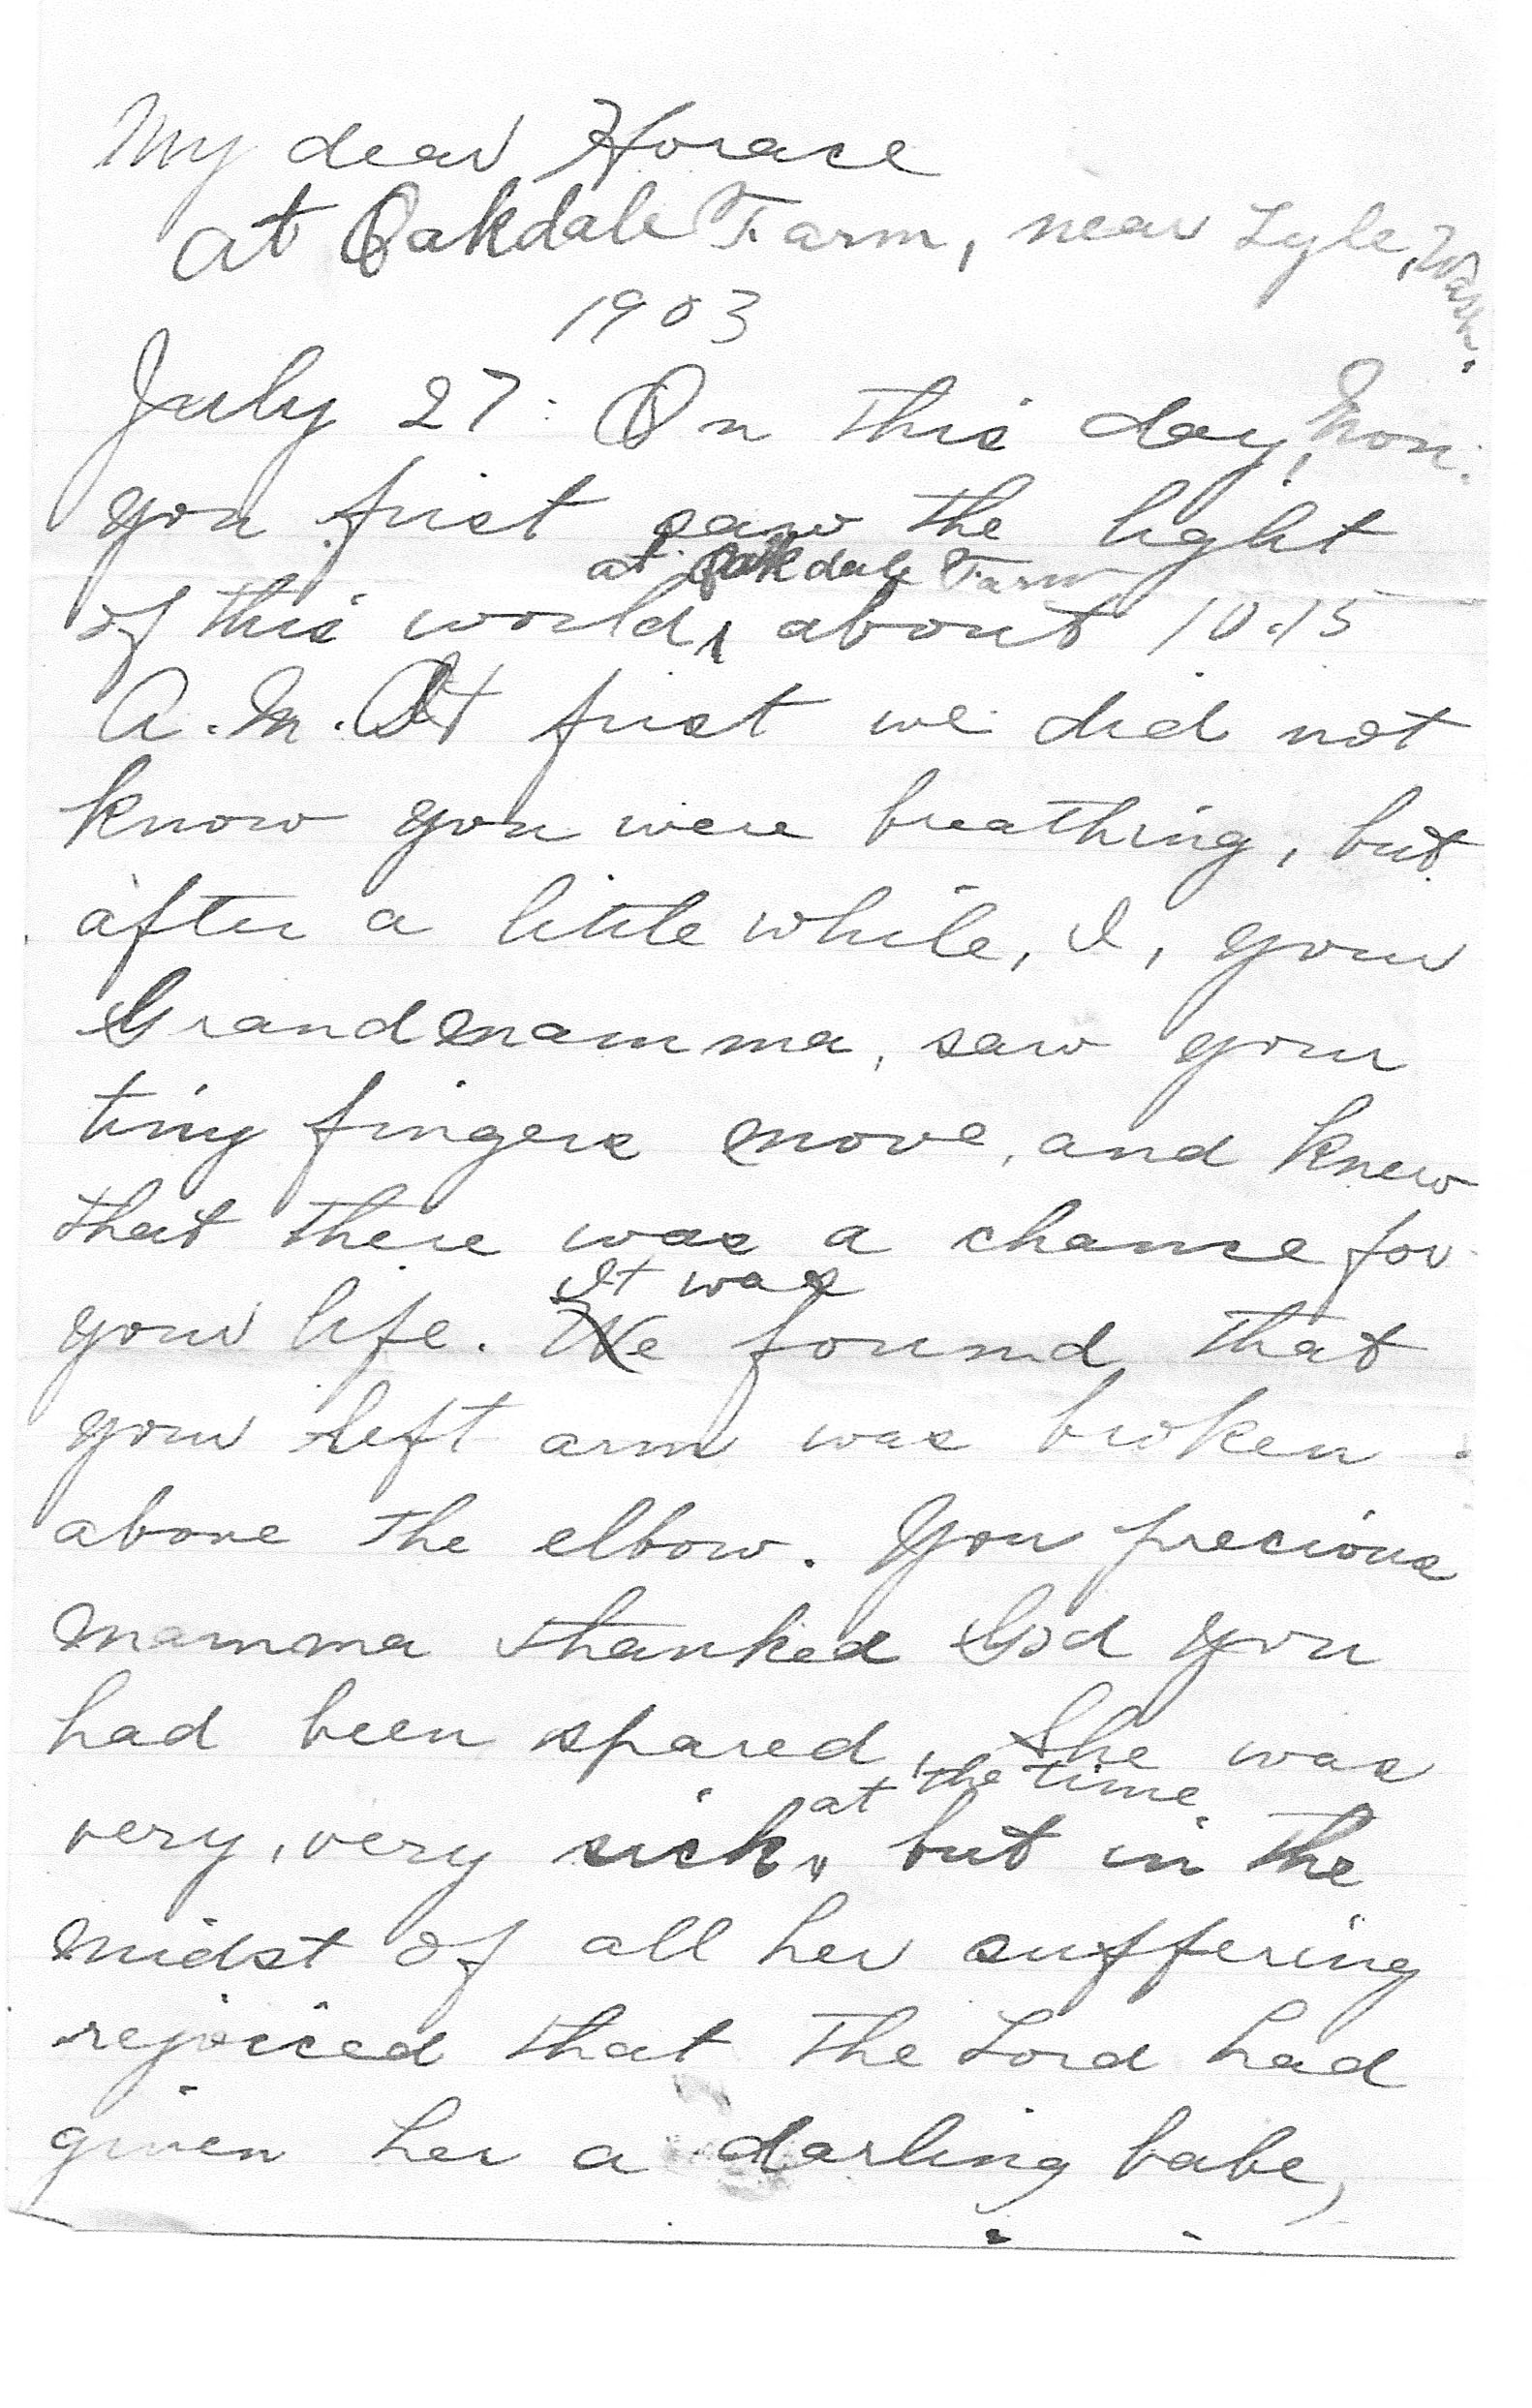 My dear Horace
at Oakdale Farm, near Lyle, Wash.
1903
July 27. On this day, Mon.
you first saw the light
at Oakdale Farm
of this world, about 10.15
A.M. At first we did not
know you were breathing, but
after a little while, I, your
Grandmamma, saw your
tiny fingers move, and knew
that there was a chance for
your life. We found that
It was
your left arm was broken
above the elbow. You precious
mamma thanked God you
had been spared, She was
at the time.
very, very sick, but in the
midst of all her suffering
rejoiced that the Lord had
given her a darling babe,